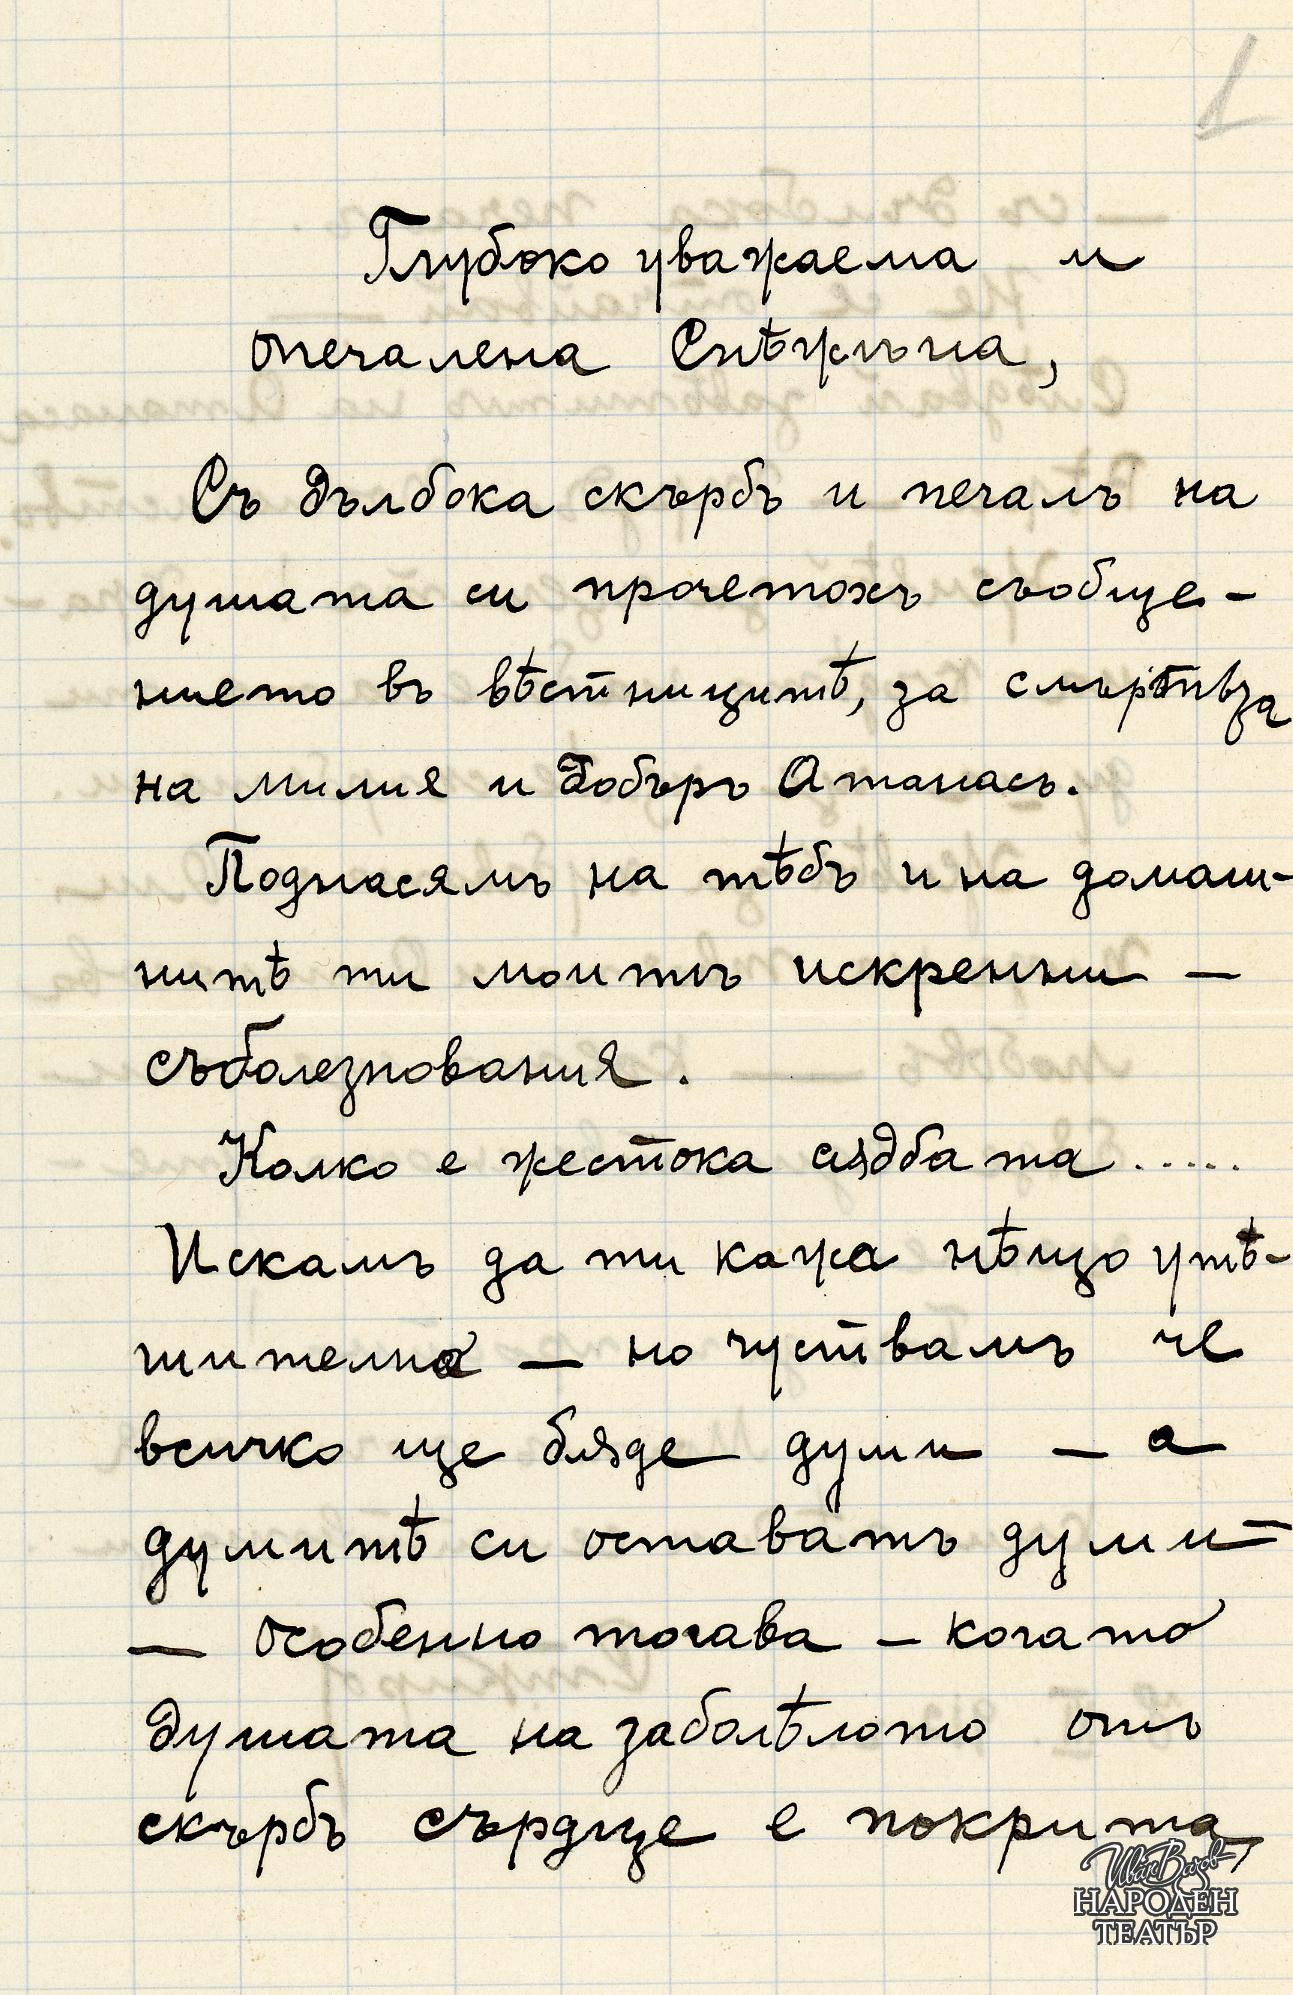 1
Глубоко уважаема и
опечалена Снѣжъна,
Съ дълбока скърбъ и печалъ на
душата си прочетохъ съобще-
нието въ вѣстницитѣ, за смъртьта
на милия и добъръ Атанасъ.
Поднасямъ на тѣбъ и на домаш-
нитѣ ти моитъ искренни –
съболезнования.
Колко е жестока сѫдбата .....
Искамъ да ти кажа нѣщо утѣ-
шително – но чуствамъ че
всичко ще бѫде думи – а
думитѣ си оставатъ думи –
– особенно тогава – когато
душата на заболѣлото отъ
скърбъ сърдце е покрита
Иван Вазов
НАРОДЕН
ТЕАТЪР